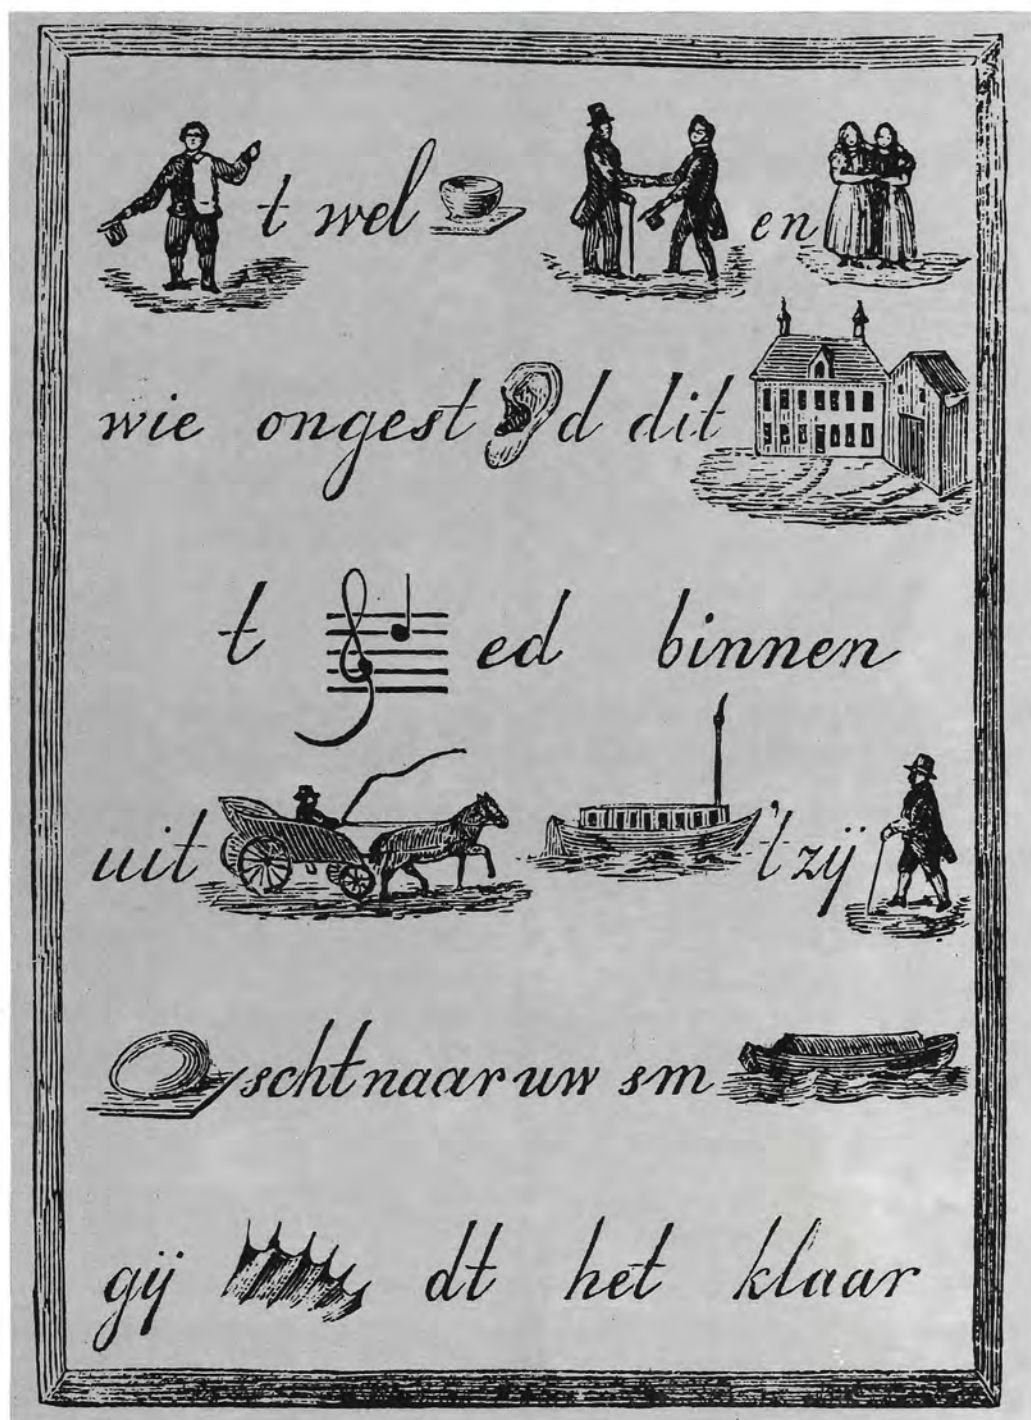 t wel en
wie ongest d dit
t ed binnen
uit 't zij
scht naar uw sm
gij dt het klaar